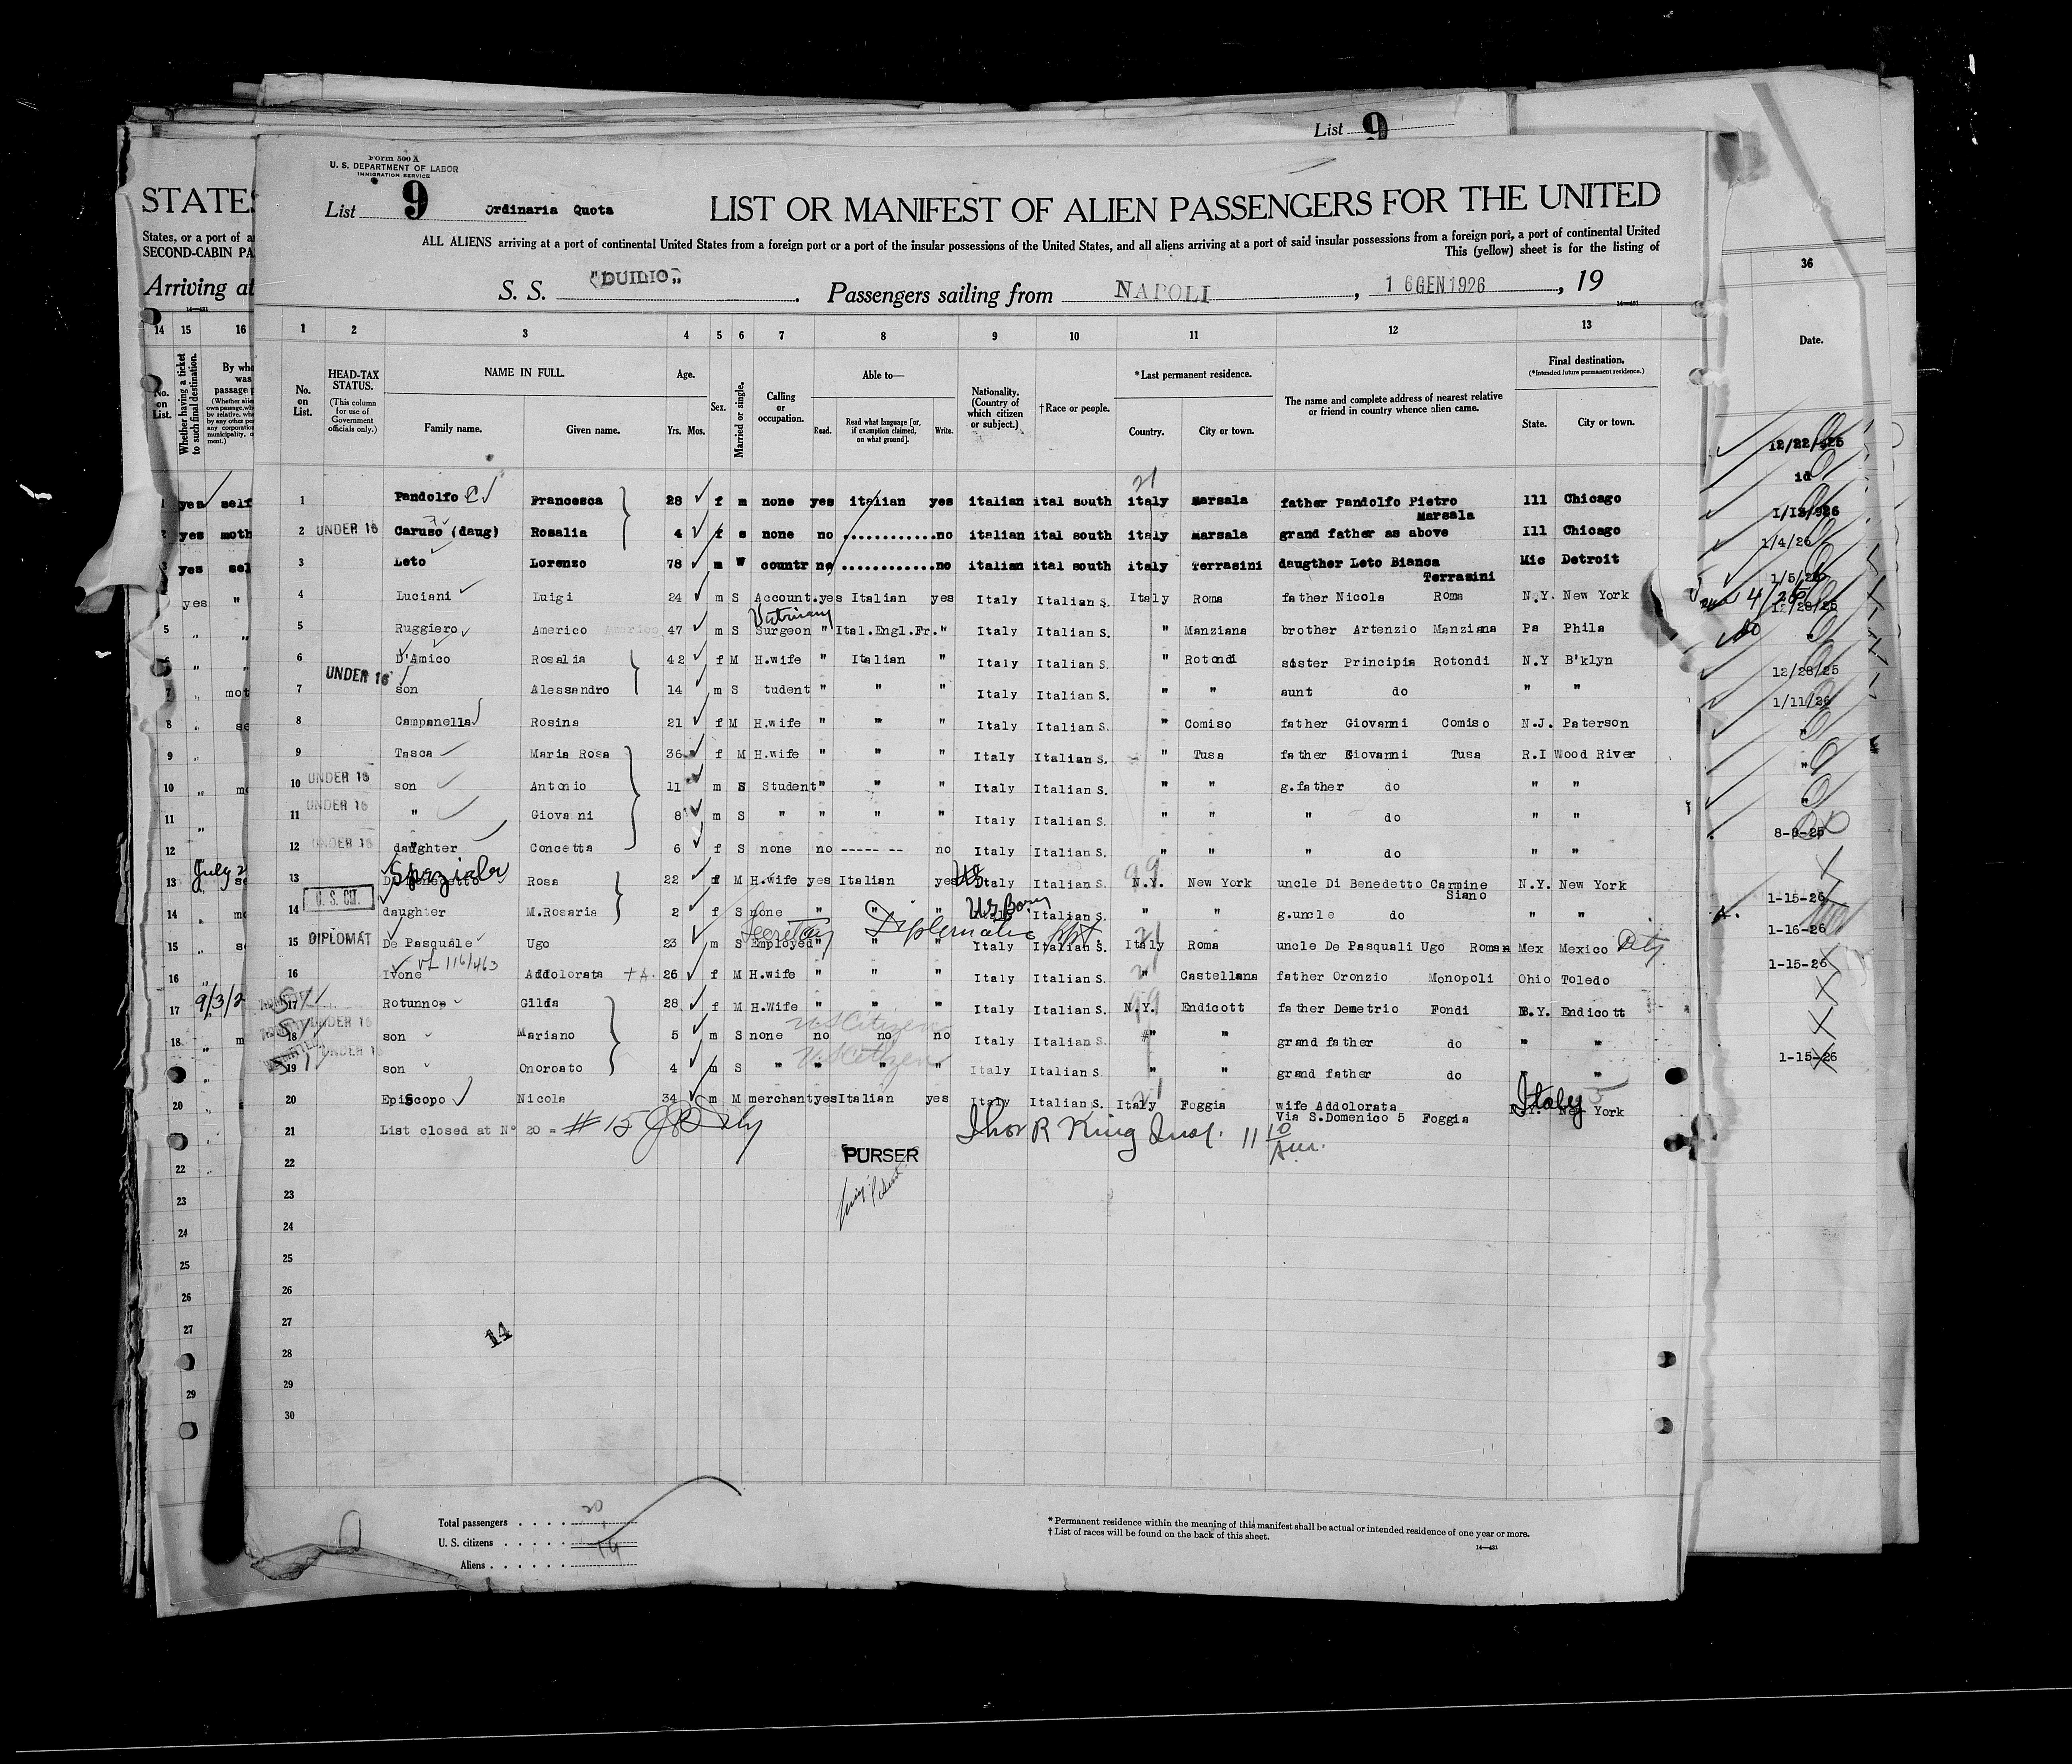 List 9
Form 500 A
U. S. DEPARTMENT OF LABOR
IMMIGRATION SERVICE
List 9 Ordinaria Quota
LIST OR MANIFEST OF ALIEN PASSENGERS FOR THE UNITED
STATES
ALL ALIENS arriving at a port of continental United States from a foreign port or a port of the insular possessions of the United States, and all aliens arriving at a port of said insular possessions from a foreign port, a port of continental United
This (yellow) sheet is for the listing of
States, or a port of
SECOND-CABIN PA
Arriving at
S. S. "DUILIO" . Passengers sailing from NAPOLI , 16 GEN 1926 , 19
14—431
14 15 16
No. on List.
Whether having a ticket to such final destination.
By who
was
passage
1 2 3 4 5 6 7 8 9 10 11 12 13
36
Date.
No. on List.
HEAD-TAX STATUS.
(This column for use of Government officials only.)
NAME IN FULL.
Family name. Given name.
Age.
Yrs. Mos.
Sex.
Married or single.
Calling or occupation.
Able to—
Read. Read what language [or, if exemption claimed, on what ground]. Write.
Nationality. (Country of which citizen or subject.)
†Race or people.
*Last permanent residence.
Country. City or town.
The name and complete address of nearest relative or friend in country whence alien came.
Final destination.
(*Intended future permanent residence.)
State. City or town.
21
1 Pandolfo Francesca 28 f m none yes italian yes italian ital south italy Marsala father Pandolfo Pietro Marsala Ill Chicago
2 UNDER 16 Caruso (daug) Rosalia 4 f s none no no italian ital south italy Marsala grand father as above Ill Chicago
3 Leto Lorenzo 78 m W countr no no italian ital south italy Terrasini daugther Leto Bianca Terrasini Mic Detroit
4 Luciani Luigi 24 m S Account. yes Italian yes Italy Italian S. Italy Roma father Nicola Roma N.Y. New York
5 Ruggiero Americo 47 m S Surgeon " Ital.Engl.Fr. " Italy Italian S. " Manziana brother Artenzio Manziana Pa Phila
6 D'Amico Rosalia 42 f M H.wife " Italian " Italy Italian S. " Rotondi sister Principia Rotondi N.Y B'klyn
7 UNDER 16 son Alessandro 14 m S tudent " " " Italy Italian S. " " aunt do " "
8 Campanella Rosina 21 f M H.wife " " " Italy Italian S. " Comiso father Giovanni Comiso N.J. Paterson
9 Tasca Maria Rosa 36 f M H.wife " " " Italy Italian S. " Tusa father Giovanni Tusa R.I Wood River
10 UNDER 16 son Antonio 11 m S Student " " " Italy Italian S. " " g.father do " "
11 UNDER 16 " Giovani 8 m S " " " " Italy Italian S. " " " do " "
12 UNDER 16 daughter Concetta 6 f S none no ----- -- no Italy Italian S. " " " do " "
13 Di Benedetto Rosa 22 f M H.wife yes Italian yes Italy Italian S. N.Y. New York uncle Di Benedetto Carmine Siano N.Y. New York
US
14 U. S. CIT. daughter M.Rosaria 2 f S none " " " US Born Italian S. " " g.uncle do " "
Secretary Diplomatic
15 DIPLOMAT De Pasquale Ugo 23 m S Employed " " " Italy Italian S. Italy Roma uncle De Pasquali Ugo Roman Mex Mexico City
VL 116/463
16 Ivone Addolorata 26 f M H.wife " " " Italy Italian S. " Castellana father Oronzio Monopoli Ohio Toledo
17 Rotunno Gilda 28 f M H.Wife " " " Italy Italian S. N.Y. Endicott father Demetrio Fondi N.Y. Endicott
US Citizen
18 UNDER 16 son Mariano 5 m S none no no no Italy Italian S. " " grand father do " "
US Citizen
19 UNDER 16 son Onoroato 4 m S " " " " Italy Italian S. " " grand father do " "
20 Episcopo Nicola 34 m M merchant yes Italian yes Italy Italian S. Italy Foggia wife Addolorata Via S.Domenico 5 Foggia N.Y. New York
Italy
21 List closed at N° 20 = # 15
Thos R King Insp. 11 10 Am.
22
PURSER
23
24
25
26
27
28
29
30
14
Total passengers 20
U. S. citizens
Aliens
* Permanent residence within the meaning of this manifest shall be actual or intended residence of one year or more.
† List of races will be found on the back of this sheet.
14—431
1 yes self
2 yes moth
3 yes sel
yes "
July 2
9/3/2
12/22/25
id
1/13/926
1/4/26
1/5/26
12/28/25
"
12/28/25
1/11/26
"
"
"
8-9-25
1-15-26
1-16-26
1-15-26
1-15-26